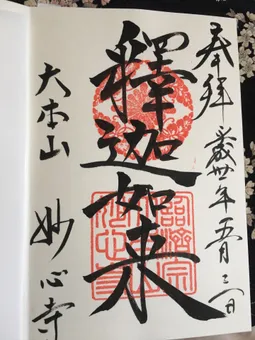 奉拝
平成卅年五月三日
釋迦如来
大本山 妙心寺